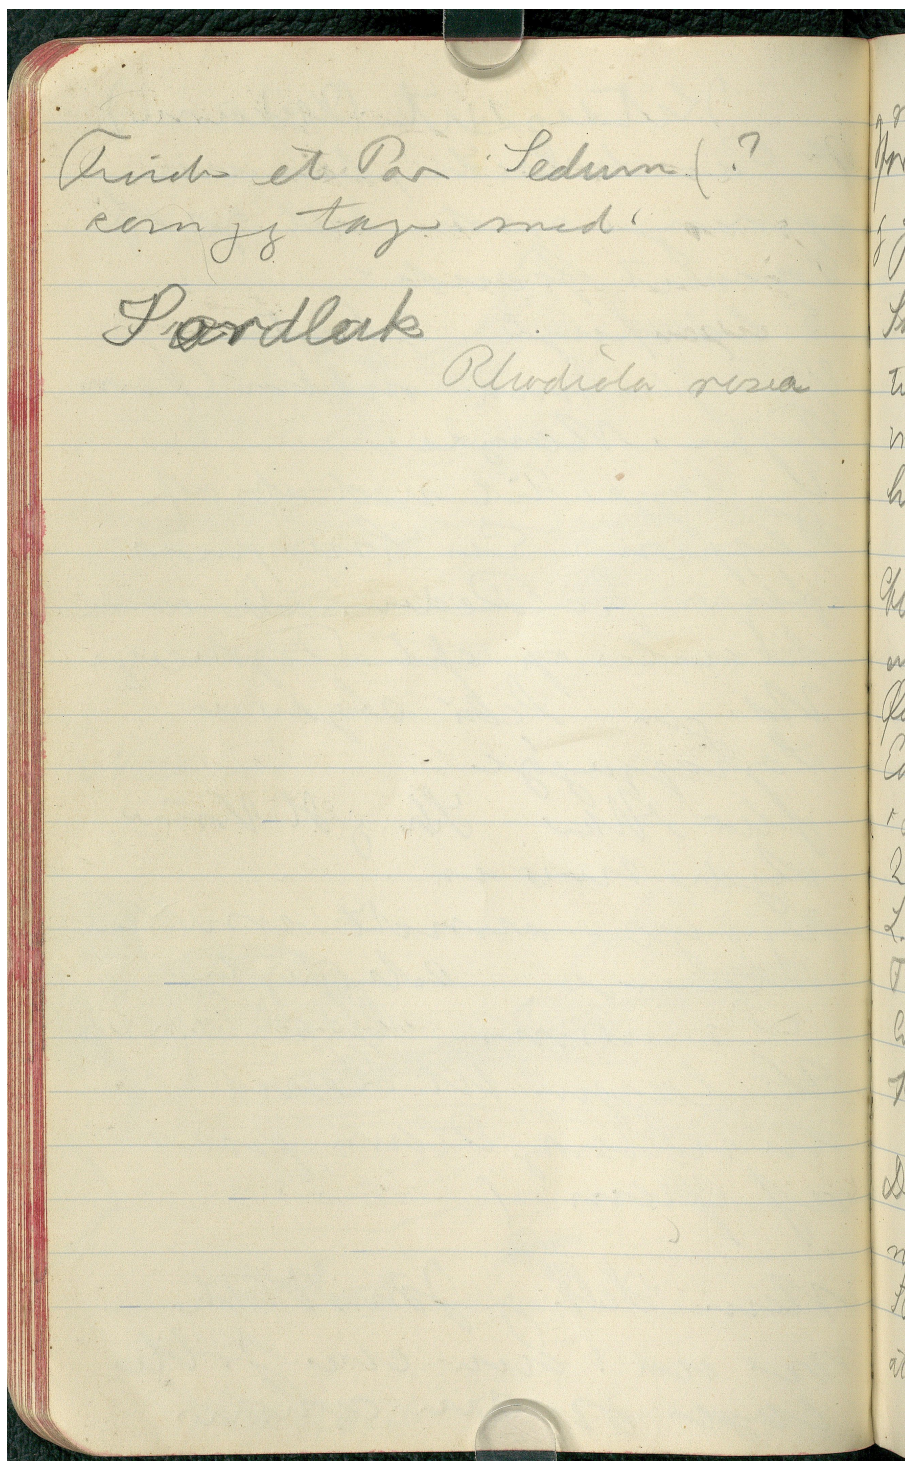 Finder et Par Sedum (?
som jeg tager med.
Særdlak
Rhodiola rosea